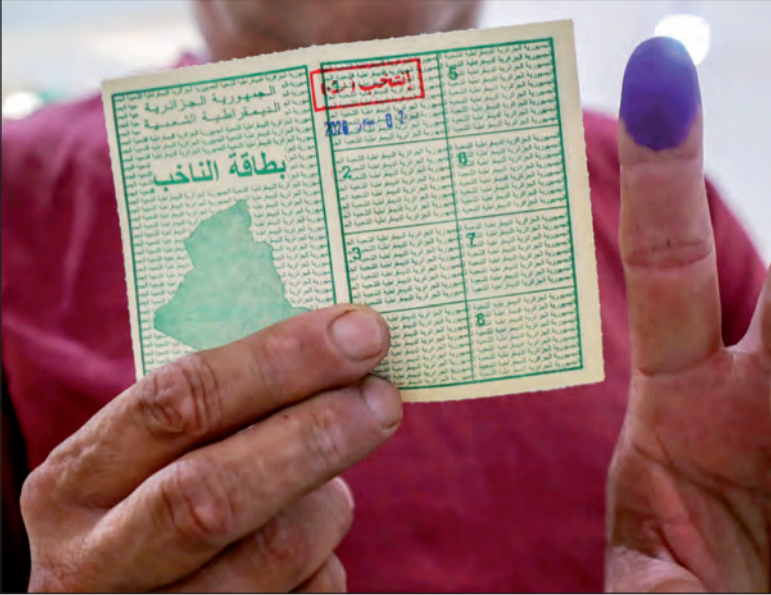 الجمهورية الجزائرية
الديمقراطية الشعبية
بطاقة الناخب
إنتخب (ت)
02 2026
2
3
5
6
7
8